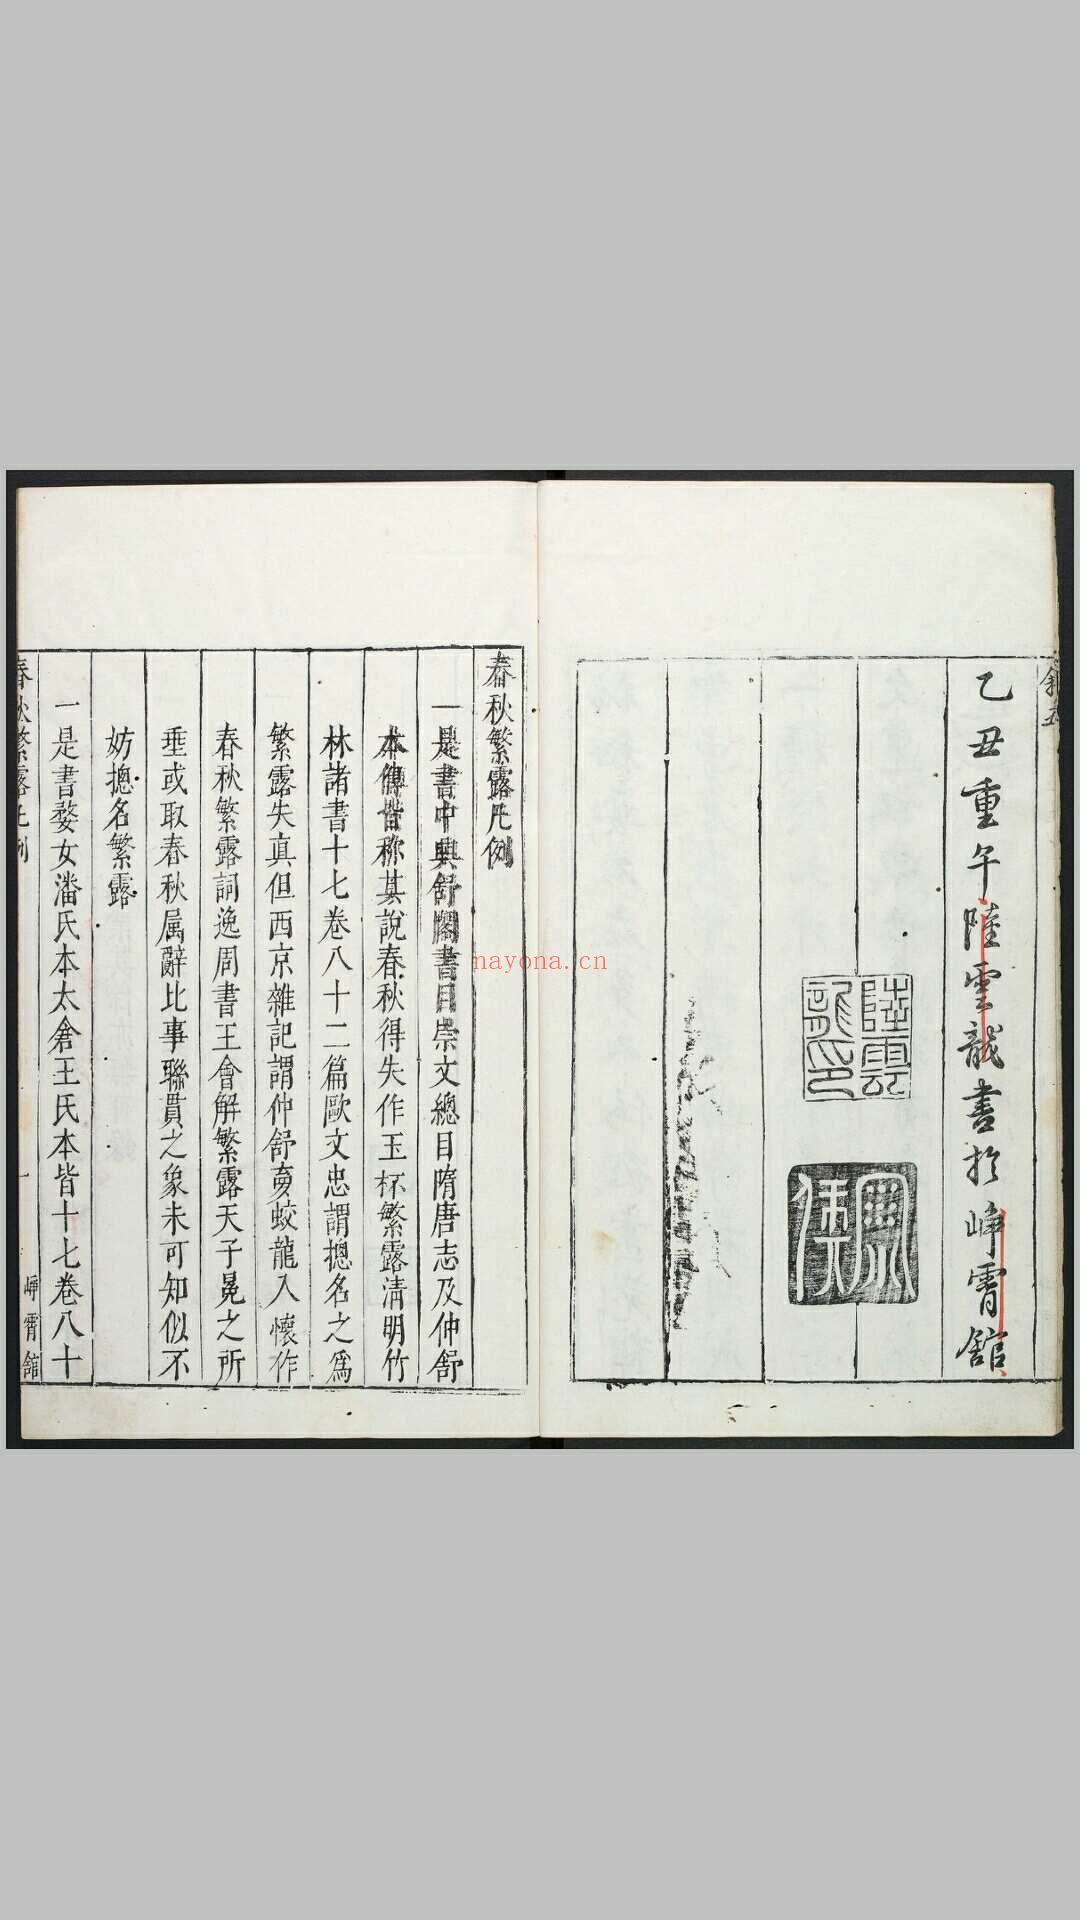 叙五
乙丑重午陸雲龍書於崢霄館
陸雲龍印
春秋繁露凡例
一是書中興舒閣書目崇文總目隋唐志及仲舒
本傳皆称其說春秋得失作玉杯繁露清明竹
林諸書十七卷八十二篇歐文忠謂摠名之爲
繁露失真但西京雜記謂仲舒夢蛟龍入懷作
春秋繁露詞逸周書王會解繁露天子冕之所
垂或取春秋属辭比事聯貫之象未可知似不
妨摠名繁露
一是書婺女潘氏本太倉王氏本皆十七卷八十
春秋繁露凡例
一
崢霄館
nayona.cn